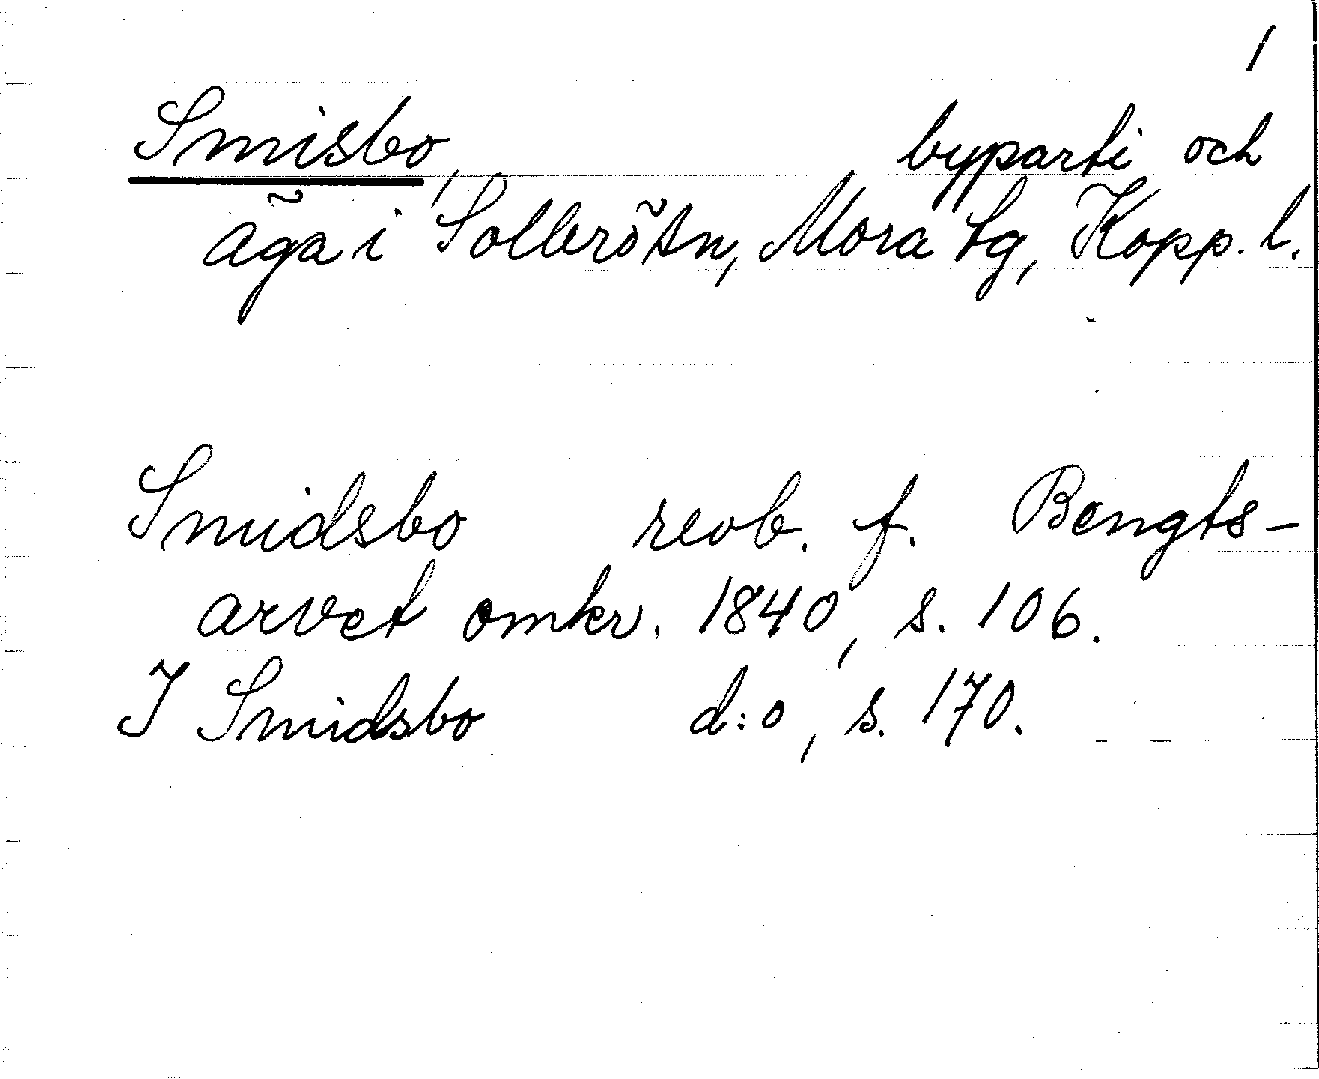 1
Smisbo, byparti och
äga i Sollerö sn, Mora tg, Kopp. l.
Smidsbo revb. f. Bengts-
arvet omkr. 1840, s. 106.
I Smidsbo d:o, s. 170.